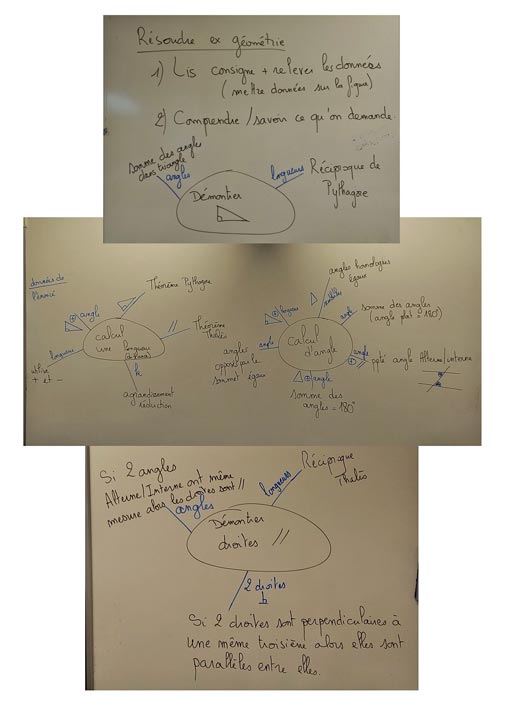 Résoudre ex géométrie
1) Lis consigne + relever les données
(mettre données sur la figure)
2) Comprendre / savoir ce qu'on demande.
somme des angles
dans triangle
angles
longueurs
Réciproque de
Pythagore
Démontrer
données de
l'énoncé
angle
Théorème Pythagore
//
Théorème
Thalès
calcul
une longueur
longueurs
utilise
+ et -
k
agrandissement
réduction
angles homologues
égaux
longueurs
angle
somme des angles
(angle plat = 180°)
Calcul
d'angle
angle
angles
opposés par le
sommet égaux
angle
// ppté angle Alterne/interne
angle
somme des
angles = 180°
Si 2 angles
Alterne/Interne ont même
mesure alors les droites sont //
angles
longueurs
Réciproque
Thalès
Démontrer
droites //
2 droites
Si 2 droites sont perpendiculaires à
une même troisième alors elles sont
parallèles entre elles.